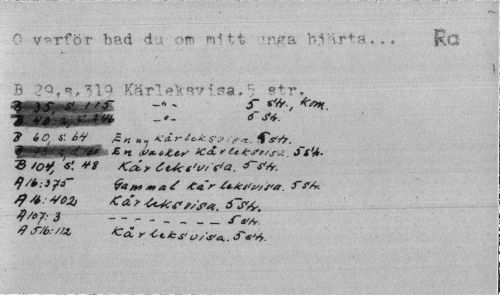 O varför bad du om mitt unga hjärta... Ra
B 29,s.319 Kärleksvisa.5 str.
B 35, s. 115 -"- 5 str., kom.
-"- 5 str.
B 60, s. 64 En ny kärleksvisa. 5 str.
En vacker Kärleksvisa. 5 str.
B 104, s. 48 Kärleksvisa. 5 str.
A 16:375 Gammal kärleksvisa. 5 str.
A 16:402 Kärleksvisa. 5 str.
A 107:3 - - - - - - - - 5 str.
A 516:112 Kärleksvisa. 5 str.